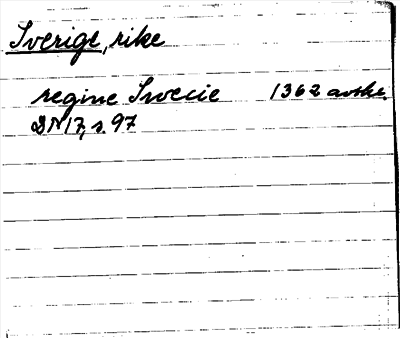 Sverige, rike
regine Swecie 1362 avskr.
DN 17, s. 97